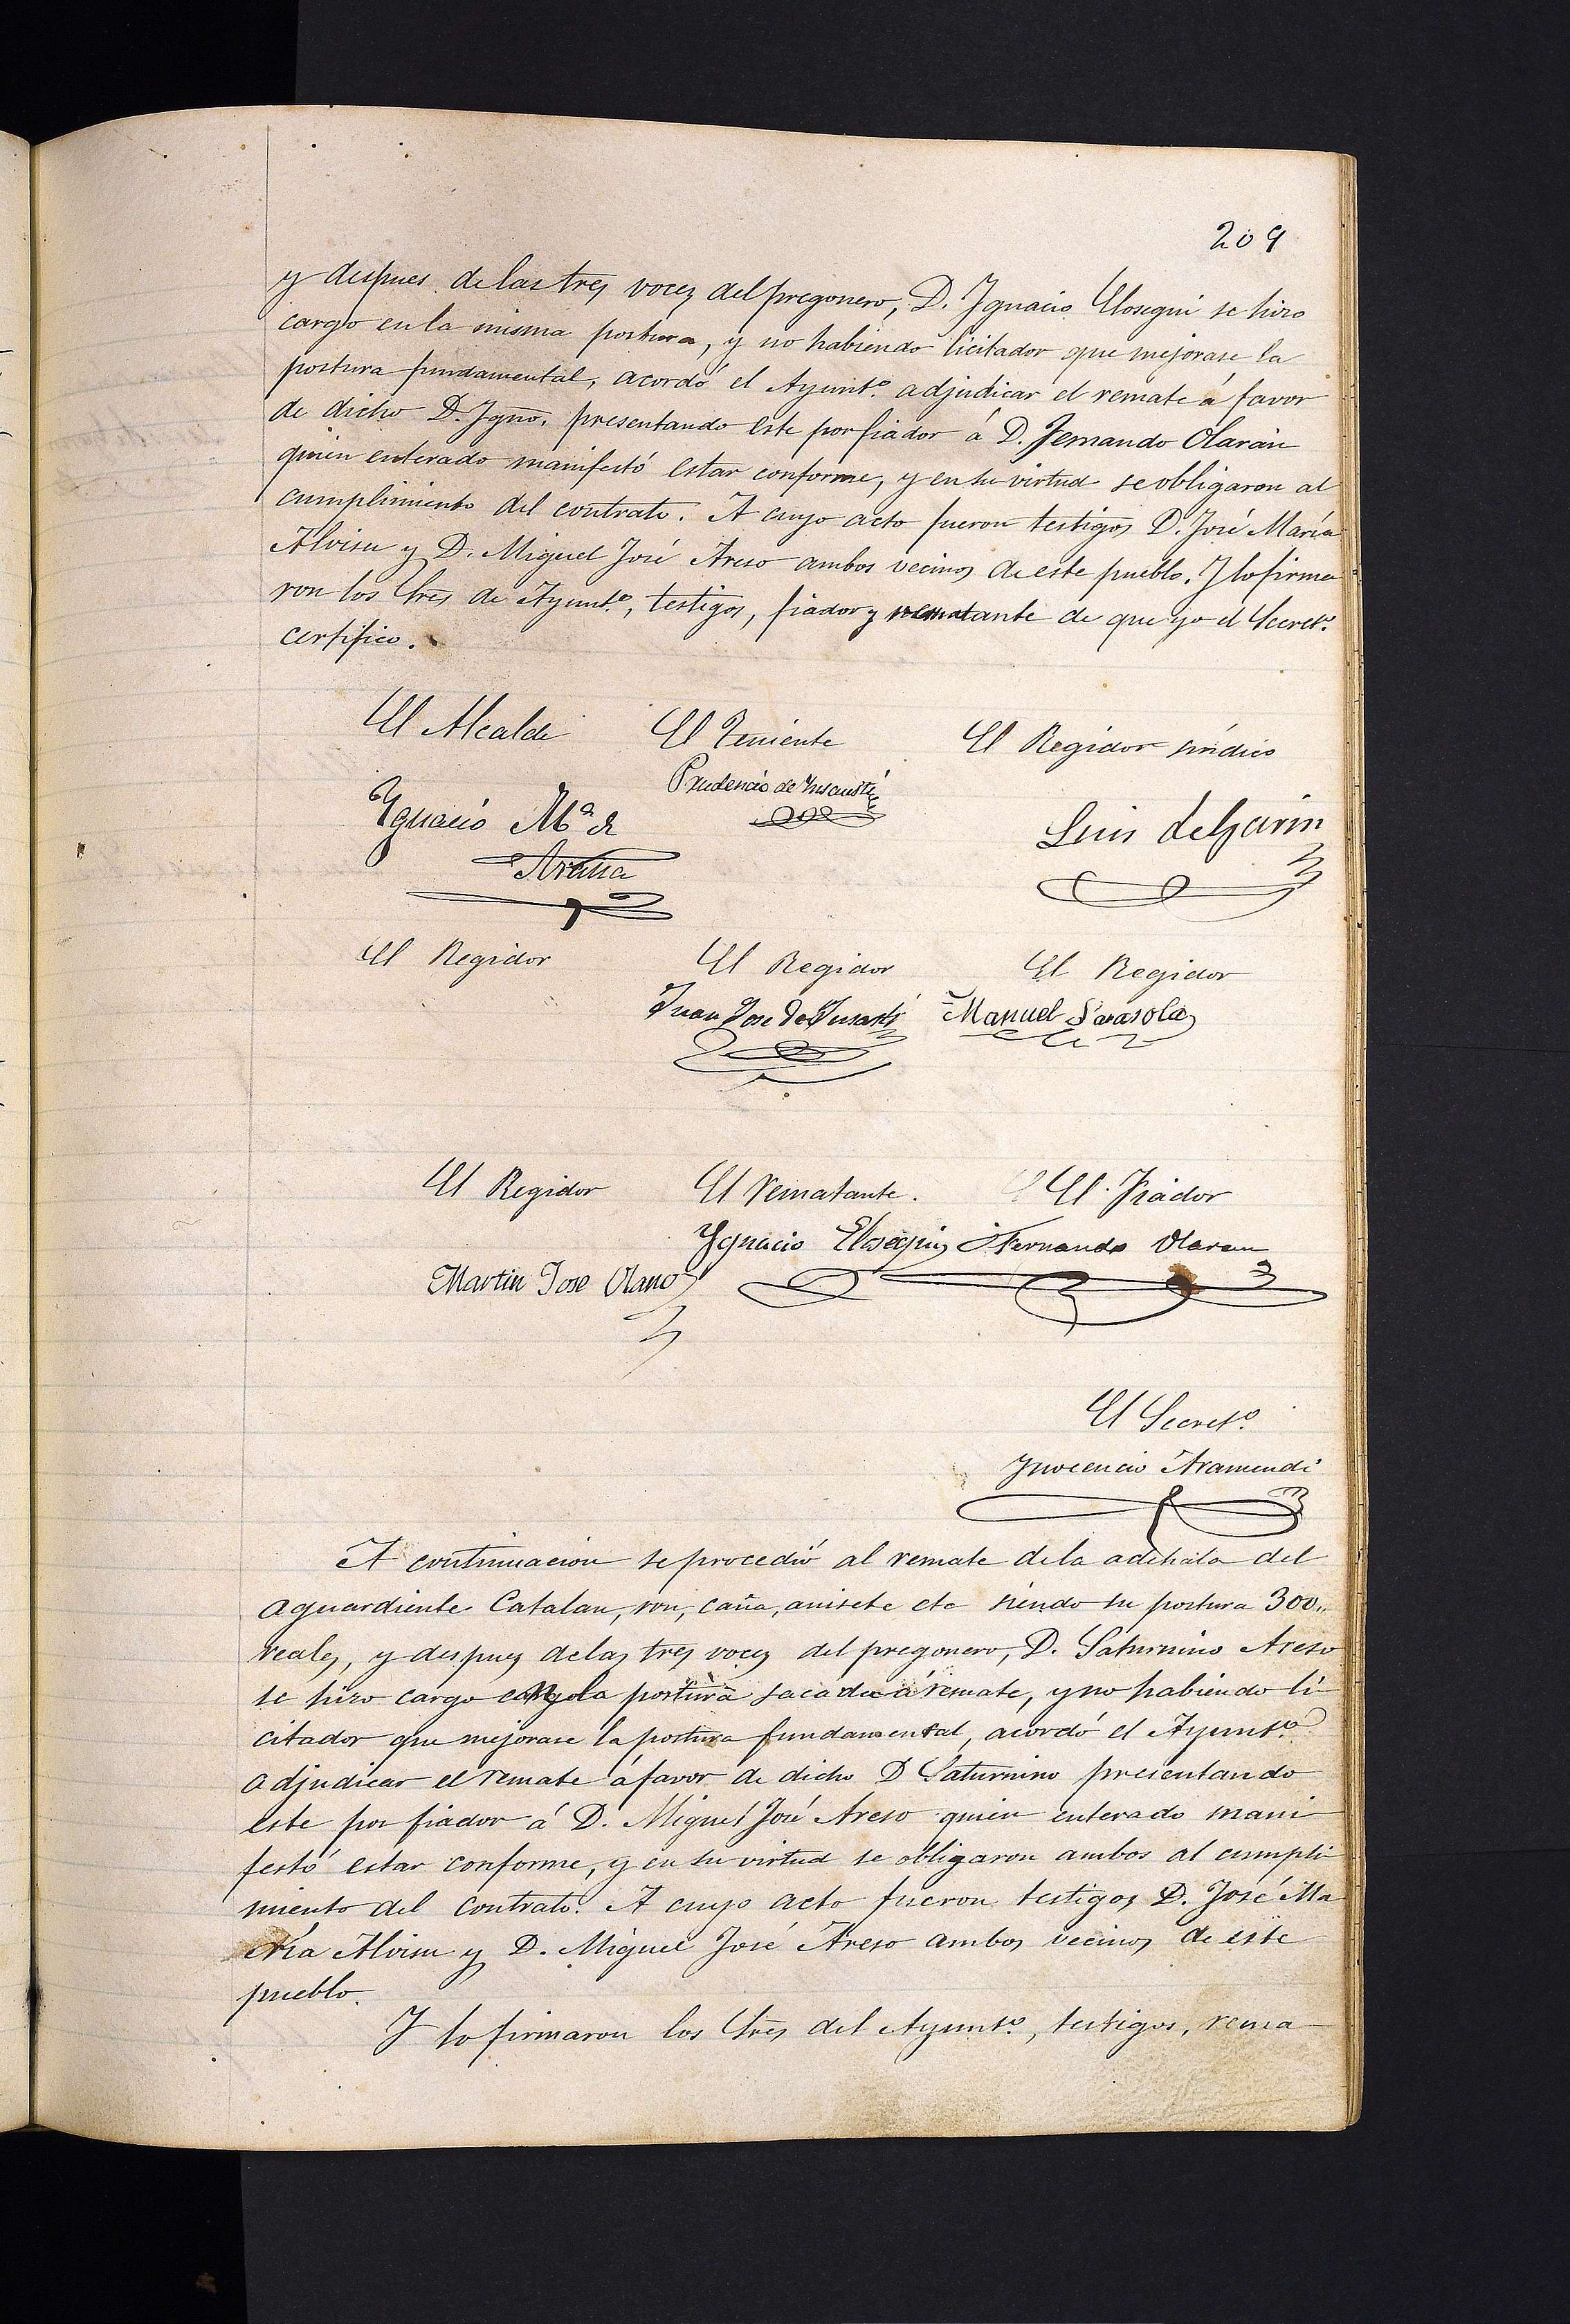 209
y despues de las tres voces del pregonero, D. Ygnacio Elosegui se hizo
cargo en la misma postura, y no habiendo licitador que mejorase la
postura fundamental, acordó el Ayuntº. adjudicar el remate á favor
de dicho D. Ygno. presentando este por fiador á D. Fernando Olarán
quien enterado manifestó estar conforme, y en su virtud se obligaron al
cumplimiento del contrato. A cuyo acto fueron testigos D. José María
Alvisu y D. Miguel José Areso ambos vecinos de este pueblo. Y lo firma
ron los Sres de Ayuntº., testigos, fiador y rematante de que yo el Secretº.
certifico.
El Alcalde El Teniente El Regidor síndico
Prudencio de
Ygnacio Mª de Luis de Garin
Arana
El Regidor El Regidor El Regidor
Juan Jose de Manuel Sarasola
El Regidor El Rematante. El Fiador
Ygnacio Elosegui Fernando Olaran
Martin Jose Olano
El Secretº.
Ynocencio Aramendi
A continuacion se procedió al remate de la adehala del
aguardiente Catalan, ron, caña, anisete etc siendo su postura 300
reales, y despues de las tres voces del pregonero, D. Saturnino Areso
se hizo cargo en la postura sacada á remate, y no habiendo li
citador que mejorase la postura fundamental, acordó el Ayuntº.
adjudicar el remate á favor de dicho D Saturnino presentando
este por fiador á D. Miguel José Areso quien enterado mani
festó estar conforme, y en su virtud se obligaron ambos al cumpli
miento del contrato. A cuyo acto fueron testigos D. José Ma
ría Alvisu y D. Miguel José Areso ambos vecinos de este
pueblo.
Y lo firmaron los Sres del Ayuntº., testigos, rema